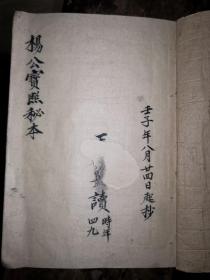 壬子年八月廿四日起抄
讀
時年
四九
楊公寶照秘本